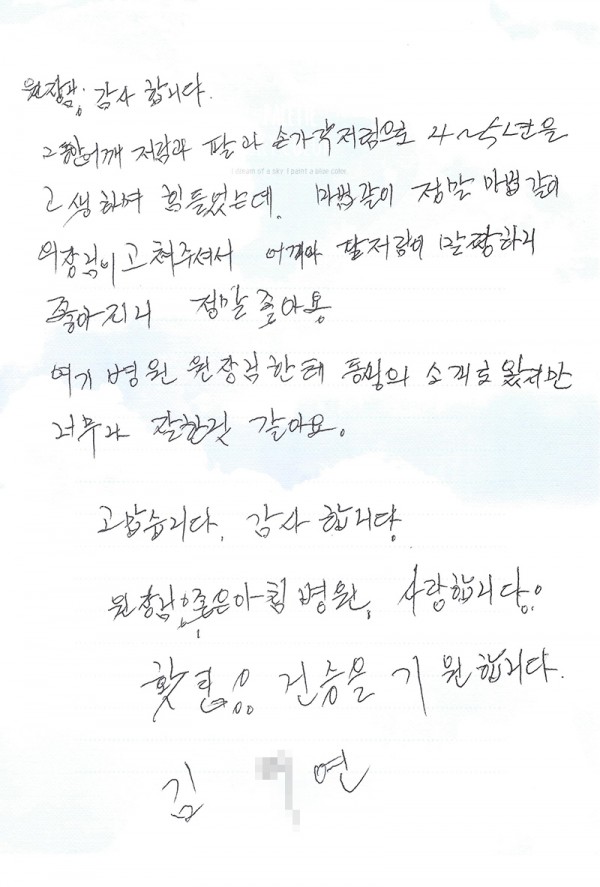 원장님; 감사 합니다.
그동안 어깨 저림과 팔 과 손가락저림으로 4~5년을
I dream of a sky I paint a blue color.
고생 하며 힘들었는데, 마법같이 정말 마법 같이
원장님이 고쳐주셔서 어깨와 팔저림이 말짱하니
좋아지니 정말 좋아용
여기 병원 원장님 한테 동생의 소개로 왔지만
너무나 잘한것 같아요.
고맙습니다. 감사 합니당
원장님, 좋은아침 병원, 사랑합니다.
건승을 기원합니다.
김 연